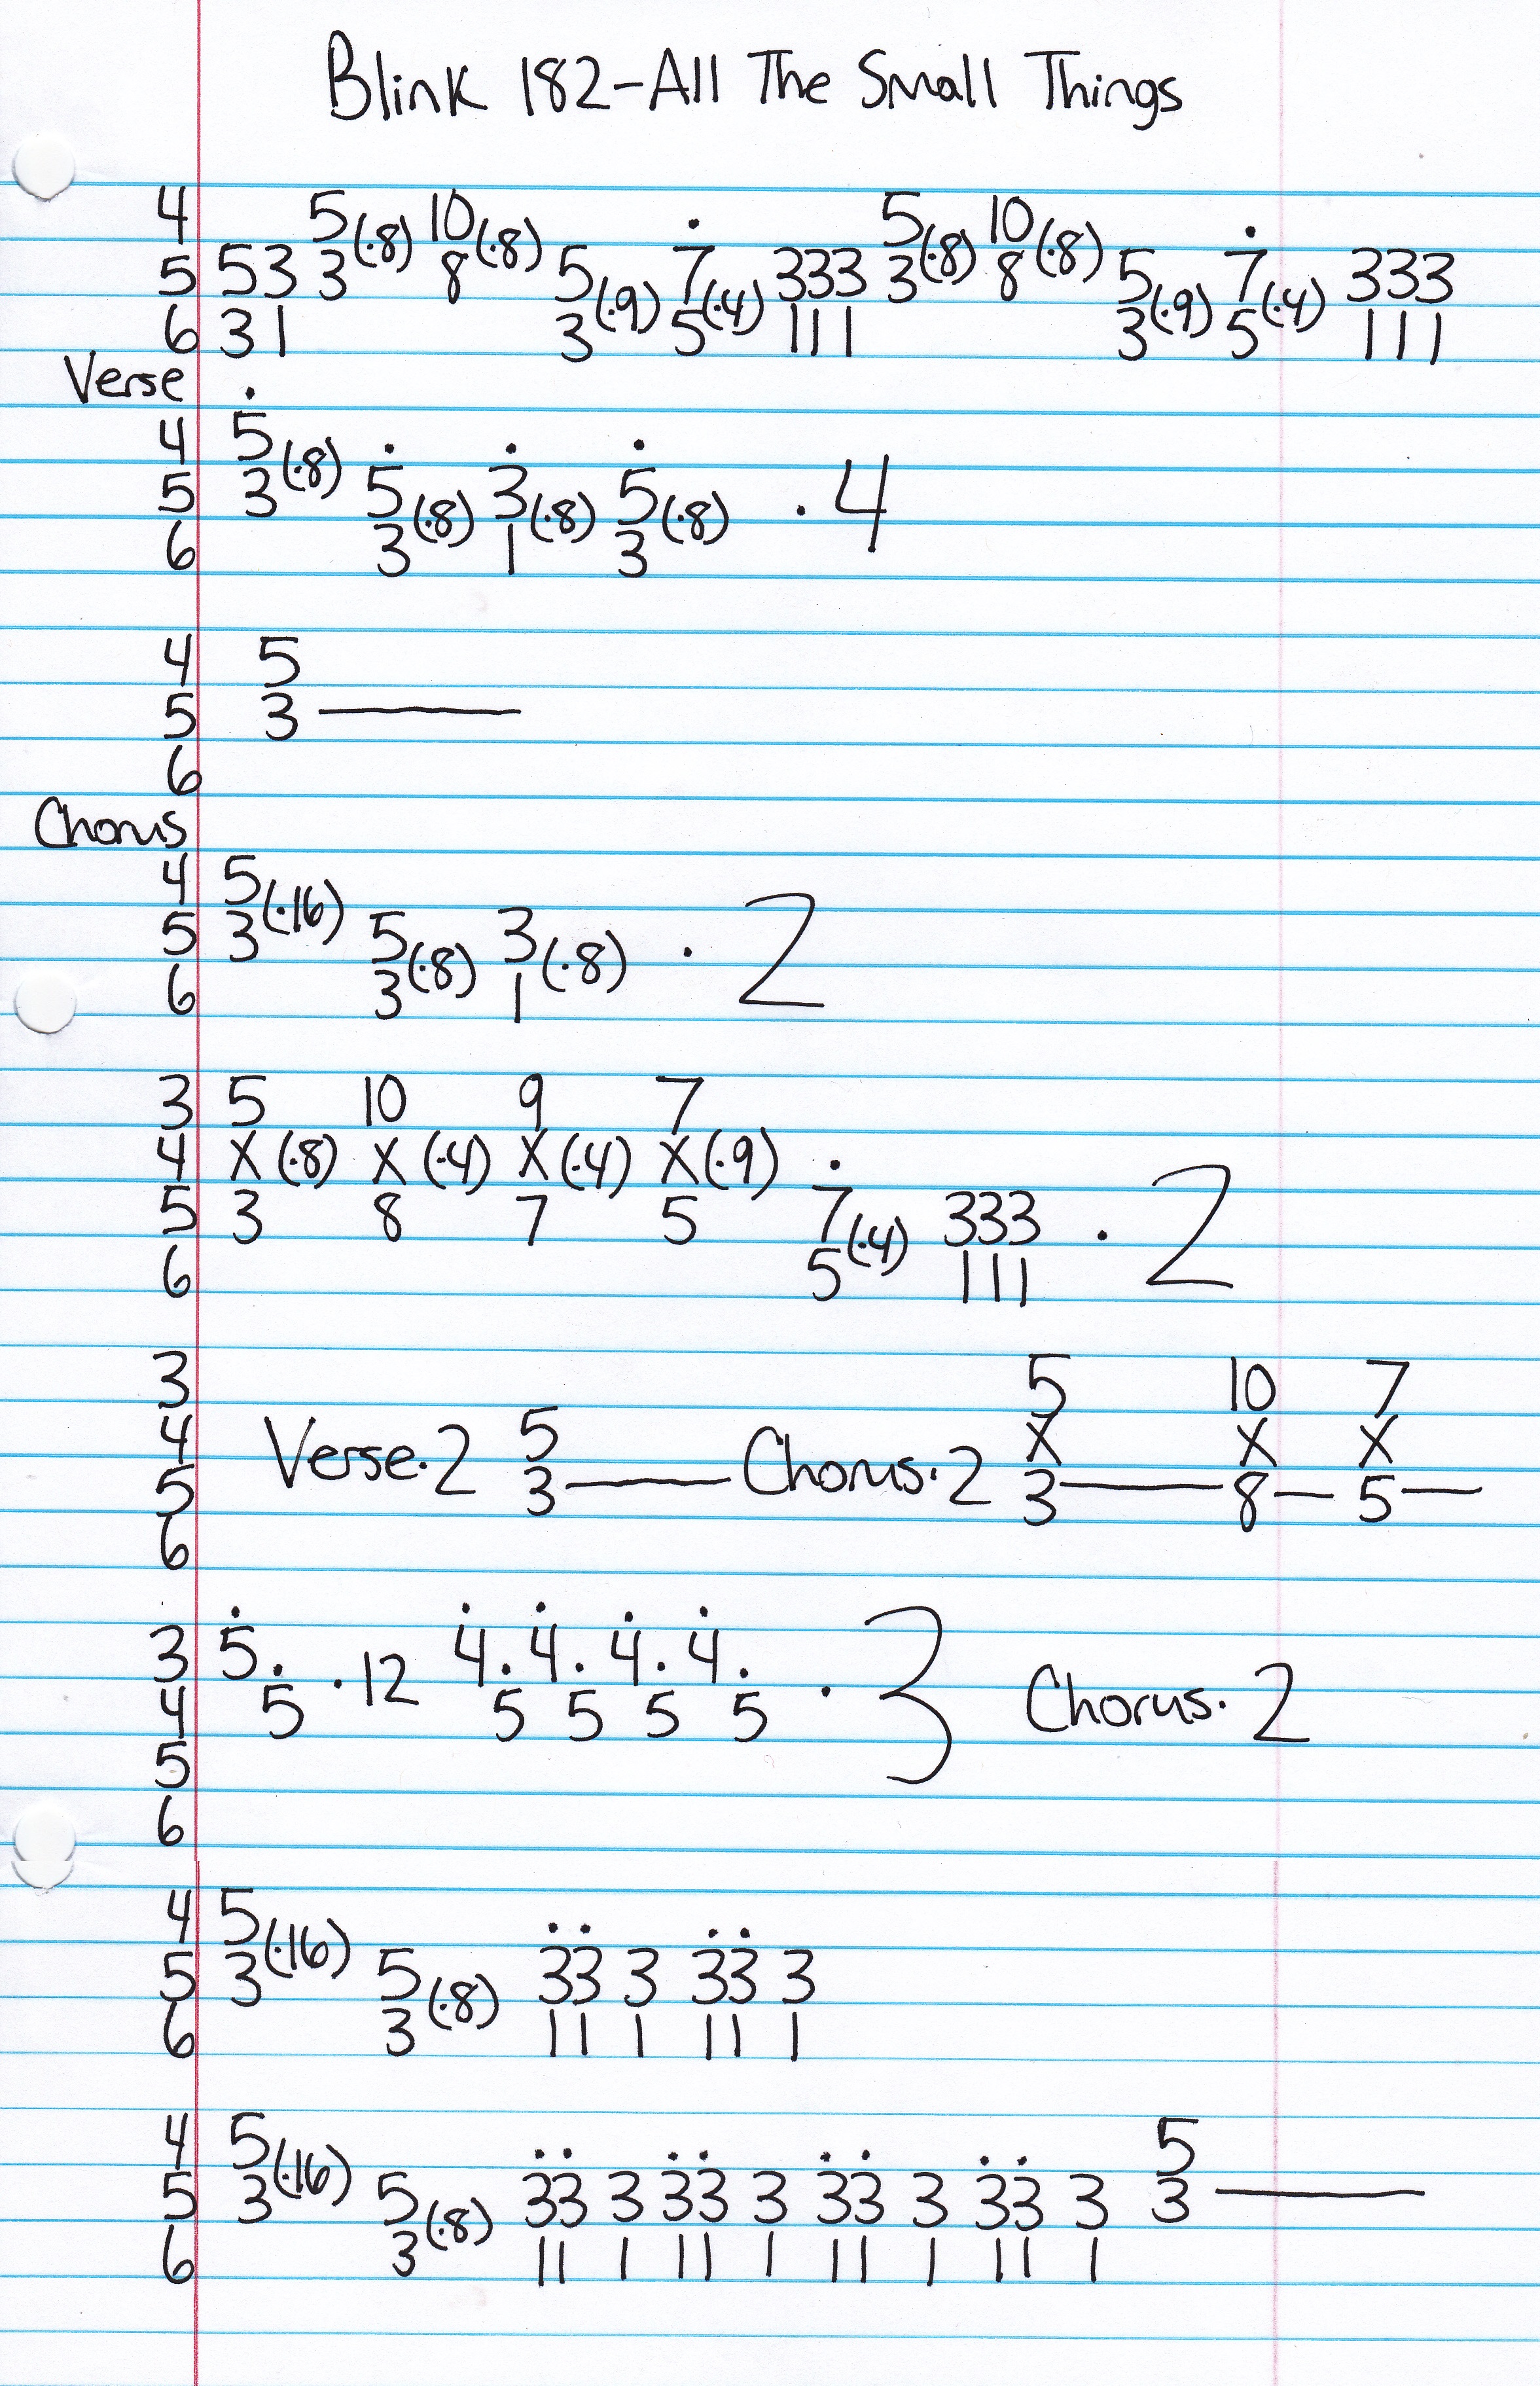 Blink 182-All The Small Things
4 5(·8) 10(·8) 5(·8) 10(·8)
5 53 3 8 5(·9) 7(·4) 333 3 8 5(·9) 7(·4) 333
6 31 3 5 111 3 5 111
Verse
4 5(·8)
5 3 5(·8) 3(·8) 5(·8) ·4
6 3 1 3
4 5
5 3
6
Chorus
4 5(·16)
5 3 5(·8) 3(·8) ·2
6 3 1
3 5 10 9 7
4 X(·8) X(·4) X(·4) X(·9)
5 3 8 7 5 7(·4) 333 ·2
6 5 111
3 5 10 7
4 Verse·2 5 Chorus·2 X X X
5 3 3 8 5
6
3 5. ·12 4. 4. 4. 4. ·3 Chorus·2
4 5 5 5 5 5
5
6
4 5(·16)
5 3 5(·8) 33 3 33 3
6 3 11 1 11 1
4 5(·16) 5
5 3 5(·8) 33 3 33 3 33 3 33 3 3
6 3 11 1 11 1 11 1 11 1